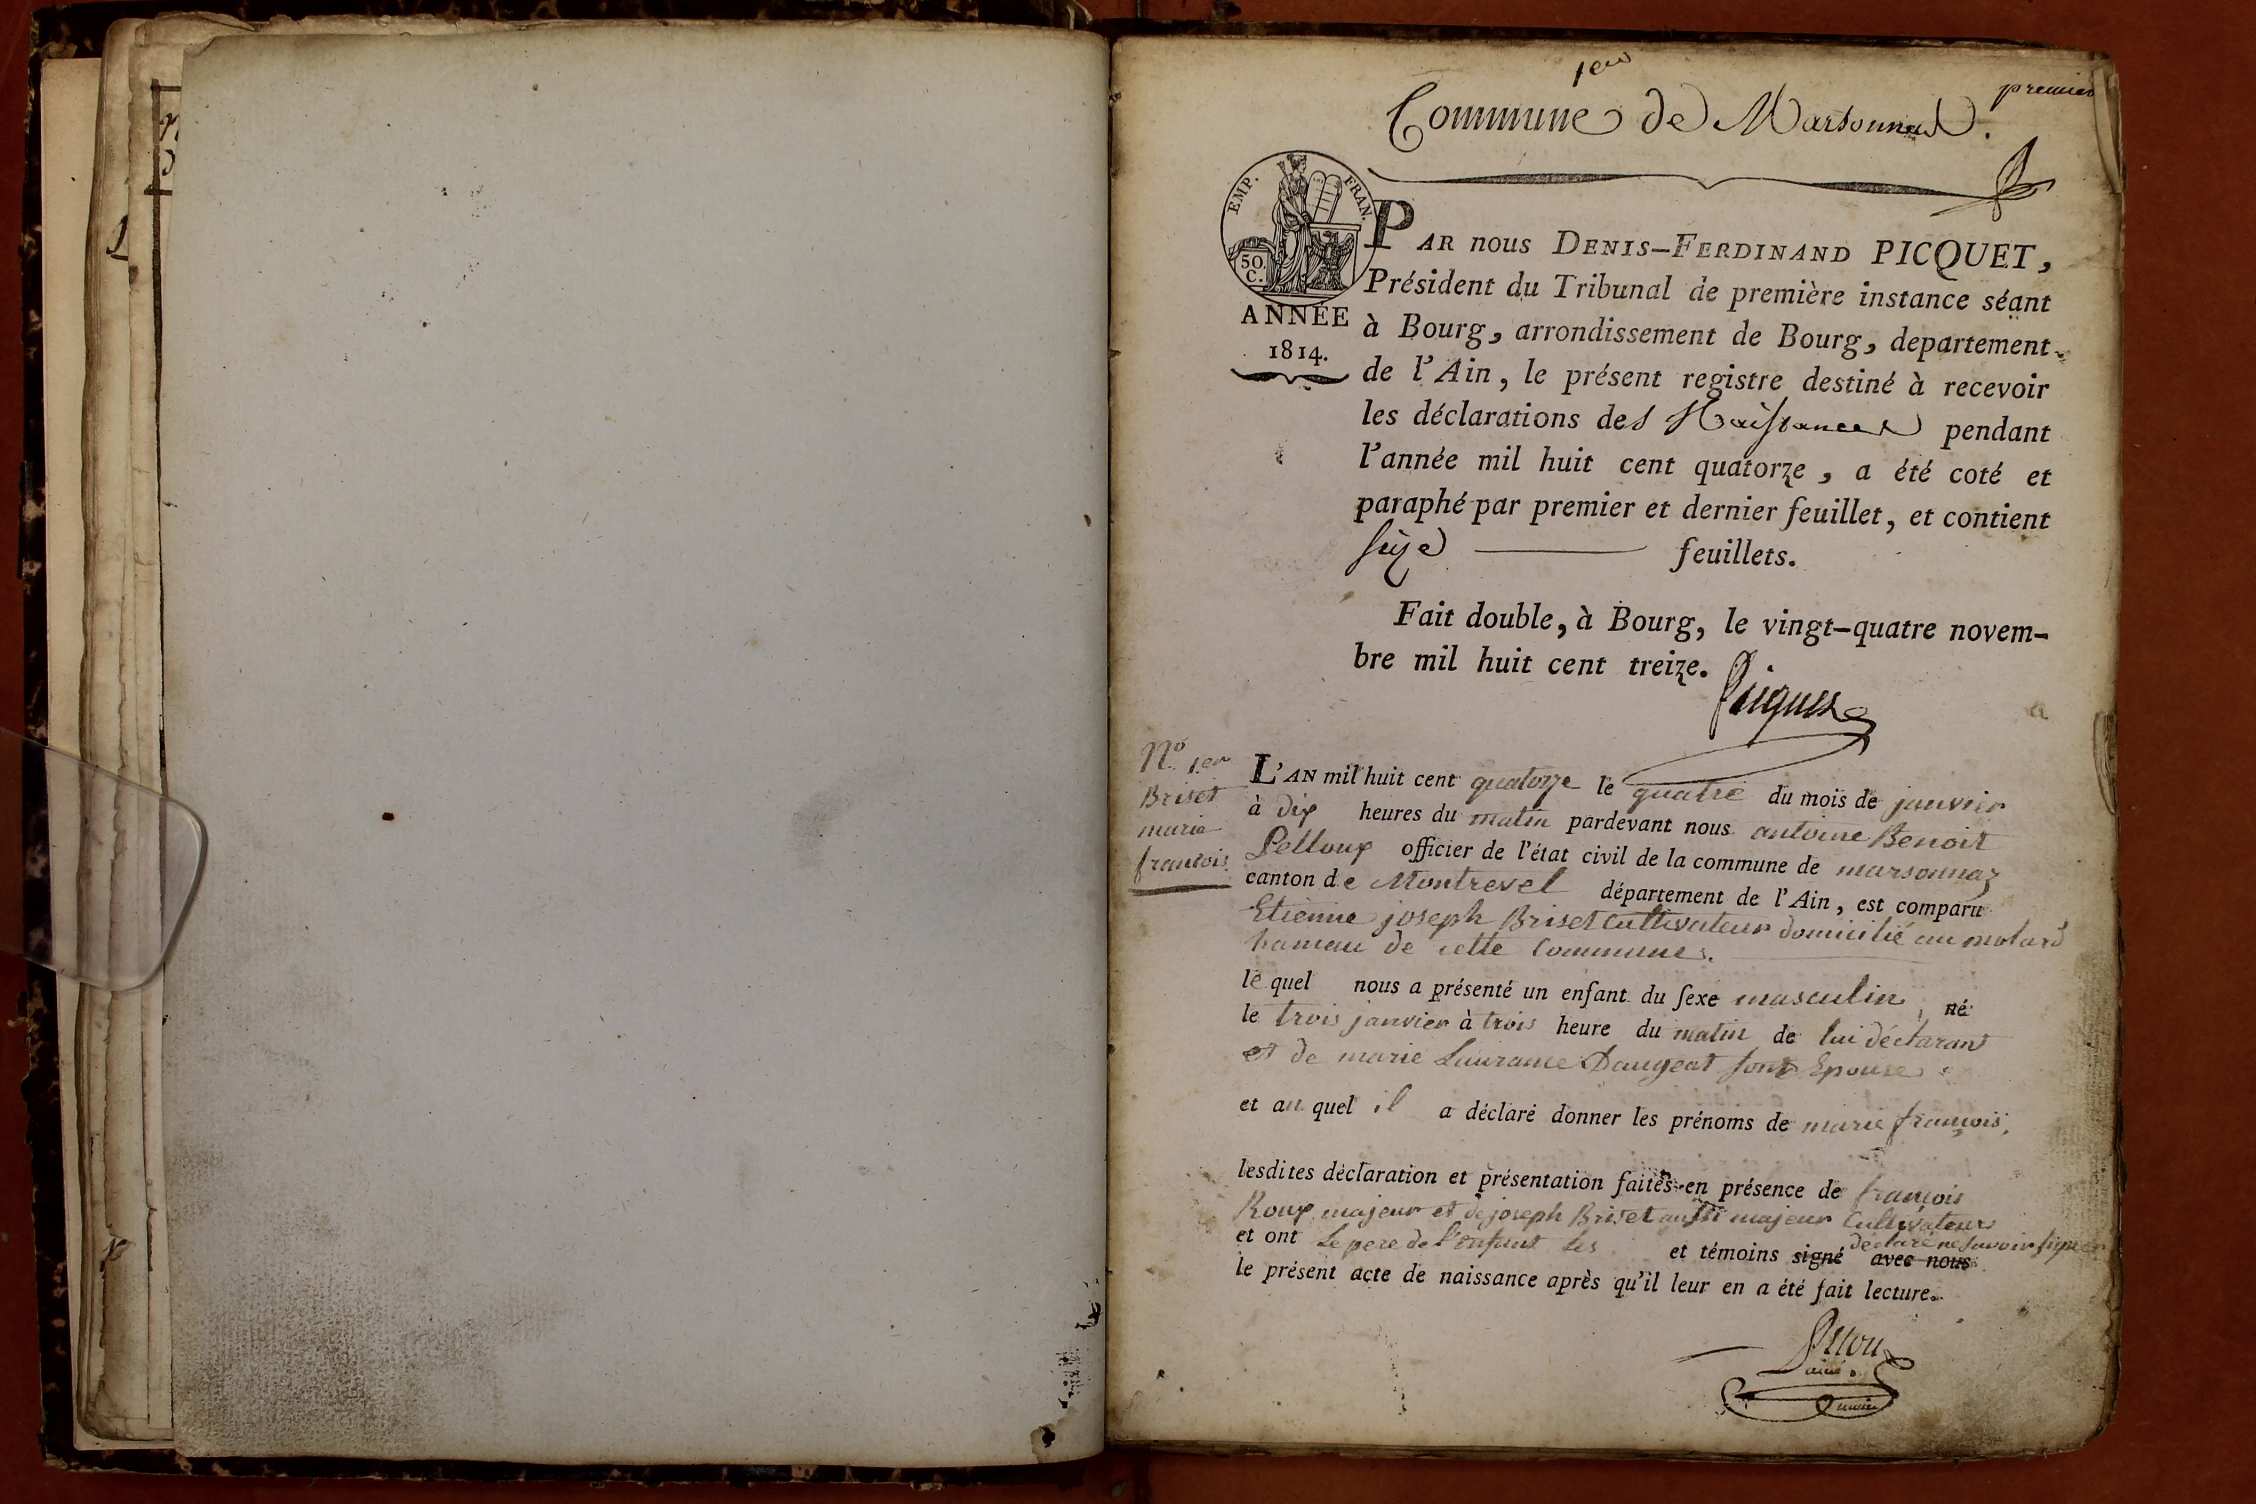 1er
premier
Commune de Marsonnas.
EMP. FRAN.
50.
C.
ANNÉE
1814.
PAR nous DENIS-FERDINAND PICQUET,
Président du Tribunal de première instance séant
à Bourg, arrondissement de Bourg, departement
de l'Ain, le présent registre destiné à recevoir
les déclarations des Naissances pendant
l'année mil huit cent quatorze, a été coté et
paraphé par premier et dernier feuillet, et contient
seize feuillets.
Fait double, à Bourg, le vingt-quatre novem-
bre mil huit cent treize.
Picquet
No. 1er
Briset
marie
francois
L'AN mil huit cent quatorze le quatre du mois de janvier
à dix heures du matin pardevant nous antoine Benoit
Pelloux officier de l'état civil de la commune de marsonnaz
canton de Montrevel département de l'Ain, est comparu
Etienne joseph Briset Cultivateur domicilié au molard
hameau de cette Commune.
le quel nous a présenté un enfant du sexe masculin, né
le trois janvier à trois heure du matin de lui déclarant
et de marie Laurance Daugeat son Epouse
et au quel il a déclaré donner les prénoms de marie françois,
lesdites déclaration et présentation faites en présence de françois
Roux majeur et de joseph Briset aussi majeur Cultivateurs
et ont Le pere de l'enfant les et témoins signé avec nous déclaré ne savoir signer
le présent acte de naissance après qu'il leur en a été fait lecture.